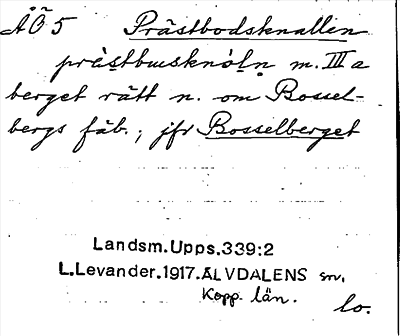 ÄÖ 5 Prästbodsknallen
prästbusknòln m. III a
berget rätt n. om Bossel-
bergs fäb.; jfr Bosselberget
Landsm.Upps.339:2
L.Levander.1917.ÄLVDALENS sn.
Kopp. län.
lo.